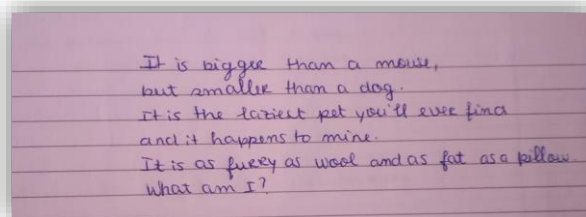 It is bigger than a mouse,
but smaller than a dog.
It is the laziest pet you'll ever find
and it happens to mine.
It is as furry as wool and as fat as a pillow.
What am I?